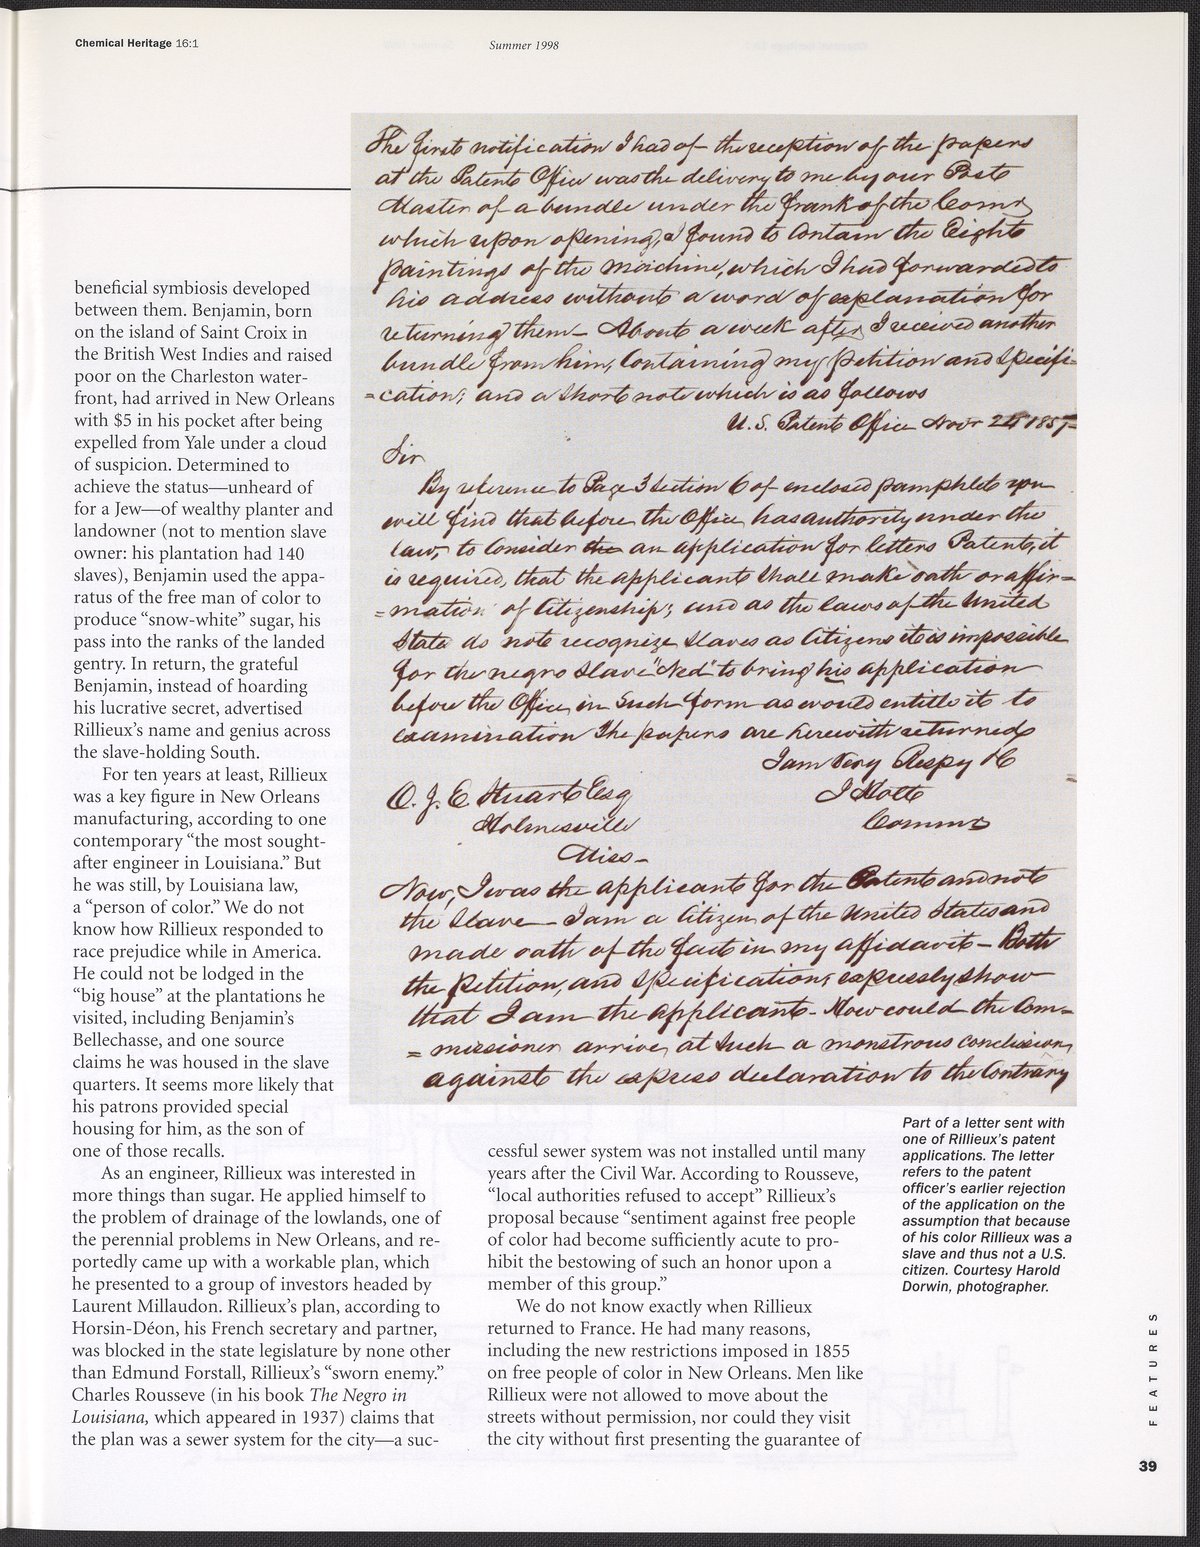 Chemical Heritage 16:1
Summer 1998
beneficial symbiosis developed
between them. Benjamin, born
on the island of Saint Croix in
the British West Indies and raised
poor on the Charleston water-
front, had arrived in New Orleans
with $5 in his pocket after being
expelled from Yale under a cloud
of suspicion. Determined to
achieve the status—unheard of
for a Jew—of wealthy planter and
landowner (not to mention slave
owner: his plantation had 140
slaves), Benjamin used the appa-
ratus of the free man of color to
produce “snow-white” sugar, his
pass into the ranks of the landed
gentry. In return, the grateful
Benjamin, instead of hoarding
his lucrative secret, advertised
Rillieux’s name and genius across
the slave-holding South.
For ten years at least, Rillieux
was a key figure in New Orleans
manufacturing, according to one
contemporary “the most sought-
after engineer in Louisiana.” But
he was still, by Louisiana law,
a “person of color.” We do not
know how Rillieux responded to
race prejudice while in America.
He could not be lodged in the
“big house” at the plantations he
visited, including Benjamin’s
Bellechasse, and one source
claims he was housed in the slave
quarters. It seems more likely that
his patrons provided special
housing for him, as the son of
one of those recalls.
As an engineer, Rillieux was interested in
more things than sugar. He applied himself to
the problem of drainage of the lowlands, one of
the perennial problems in New Orleans, and re-
portedly came up with a workable plan, which
he presented to a group of investors headed by
Laurent Millaudon. Rillieux’s plan, according to
Horsin-Déon, his French secretary and partner,
was blocked in the state legislature by none other
than Edmund Forstall, Rillieux’s “sworn enemy.”
Charles Rousseve (in his book The Negro in
Louisiana, which appeared in 1937) claims that
the plan was a sewer system for the city—a suc-
The first notification I had of the reception of the papers
at the Patent Office was the delivery to me by our Post
Master of a bundle under the frank of the Comr
which upon opening, I found to contain the Eight
paintings of the machine, which I had forwarded to
his address without a word of explanation for
returning them - About a week after I received another
bundle from him, Containing my petition and Specifi-
=cation; and a short note which is as follows
U. S. Patent Office Novr 1857
Sir
By reference to Page 3 Section 6 of enclosed pamphlet you
will find that before the Office has authority under the
law, to Consider the an application for letters Patent, it
is required, that the applicant shall make oath or affir=
=mation of Citizenship; and as the laws of the United
State do not recognize Slaves as Citizens it is impossible
for the negro Slave "Ned" to bring his application
before the Office in Such form as would entitle it to
examination The papers are herewith returned
I am Very Respy &c
O. J. E. Stuart Esq
J Holt
Holmesville
Commr
Miss -
Now, I was the applicant for the Patent and not
the Slave - I am a Citizen of the United States and
made oath of the fact in my affidavit - Both
the petition, and Specification, expressly show
that I am the applicant - How could the Com=
=missioner arrive, at such a monstrous conclusion,
against the express declaration to the Contrary
cessful sewer system was not installed until many
years after the Civil War. According to Rousseve,
“local authorities refused to accept” Rillieux’s
proposal because “sentiment against free people
of color had become sufficiently acute to pro-
hibit the bestowing of such an honor upon a
member of this group.”
We do not know exactly when Rillieux
returned to France. He had many reasons,
including the new restrictions imposed in 1855
on free people of color in New Orleans. Men like
Rillieux were not allowed to move about the
streets without permission, nor could they visit
the city without first presenting the guarantee of
Part of a letter sent with
one of Rillieux’s patent
applications. The letter
refers to the patent
officer’s earlier rejection
of the application on the
assumption that because
of his color Rillieux was a
slave and thus not a U.S.
citizen. Courtesy Harold
Dorwin, photographer.
FEATURES
39